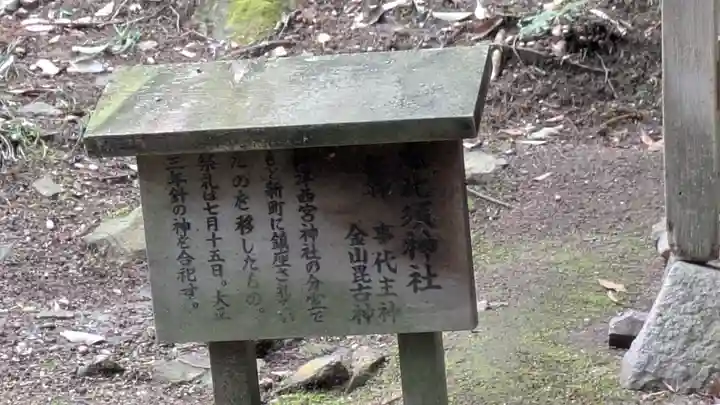 比須神社
事代主神
金山毘古神
西宮神社の分霊を
もと新町に鎮座されてい
たのを移したもの。
祭礼は七月十五日。大正
三年針の神を合祀す。